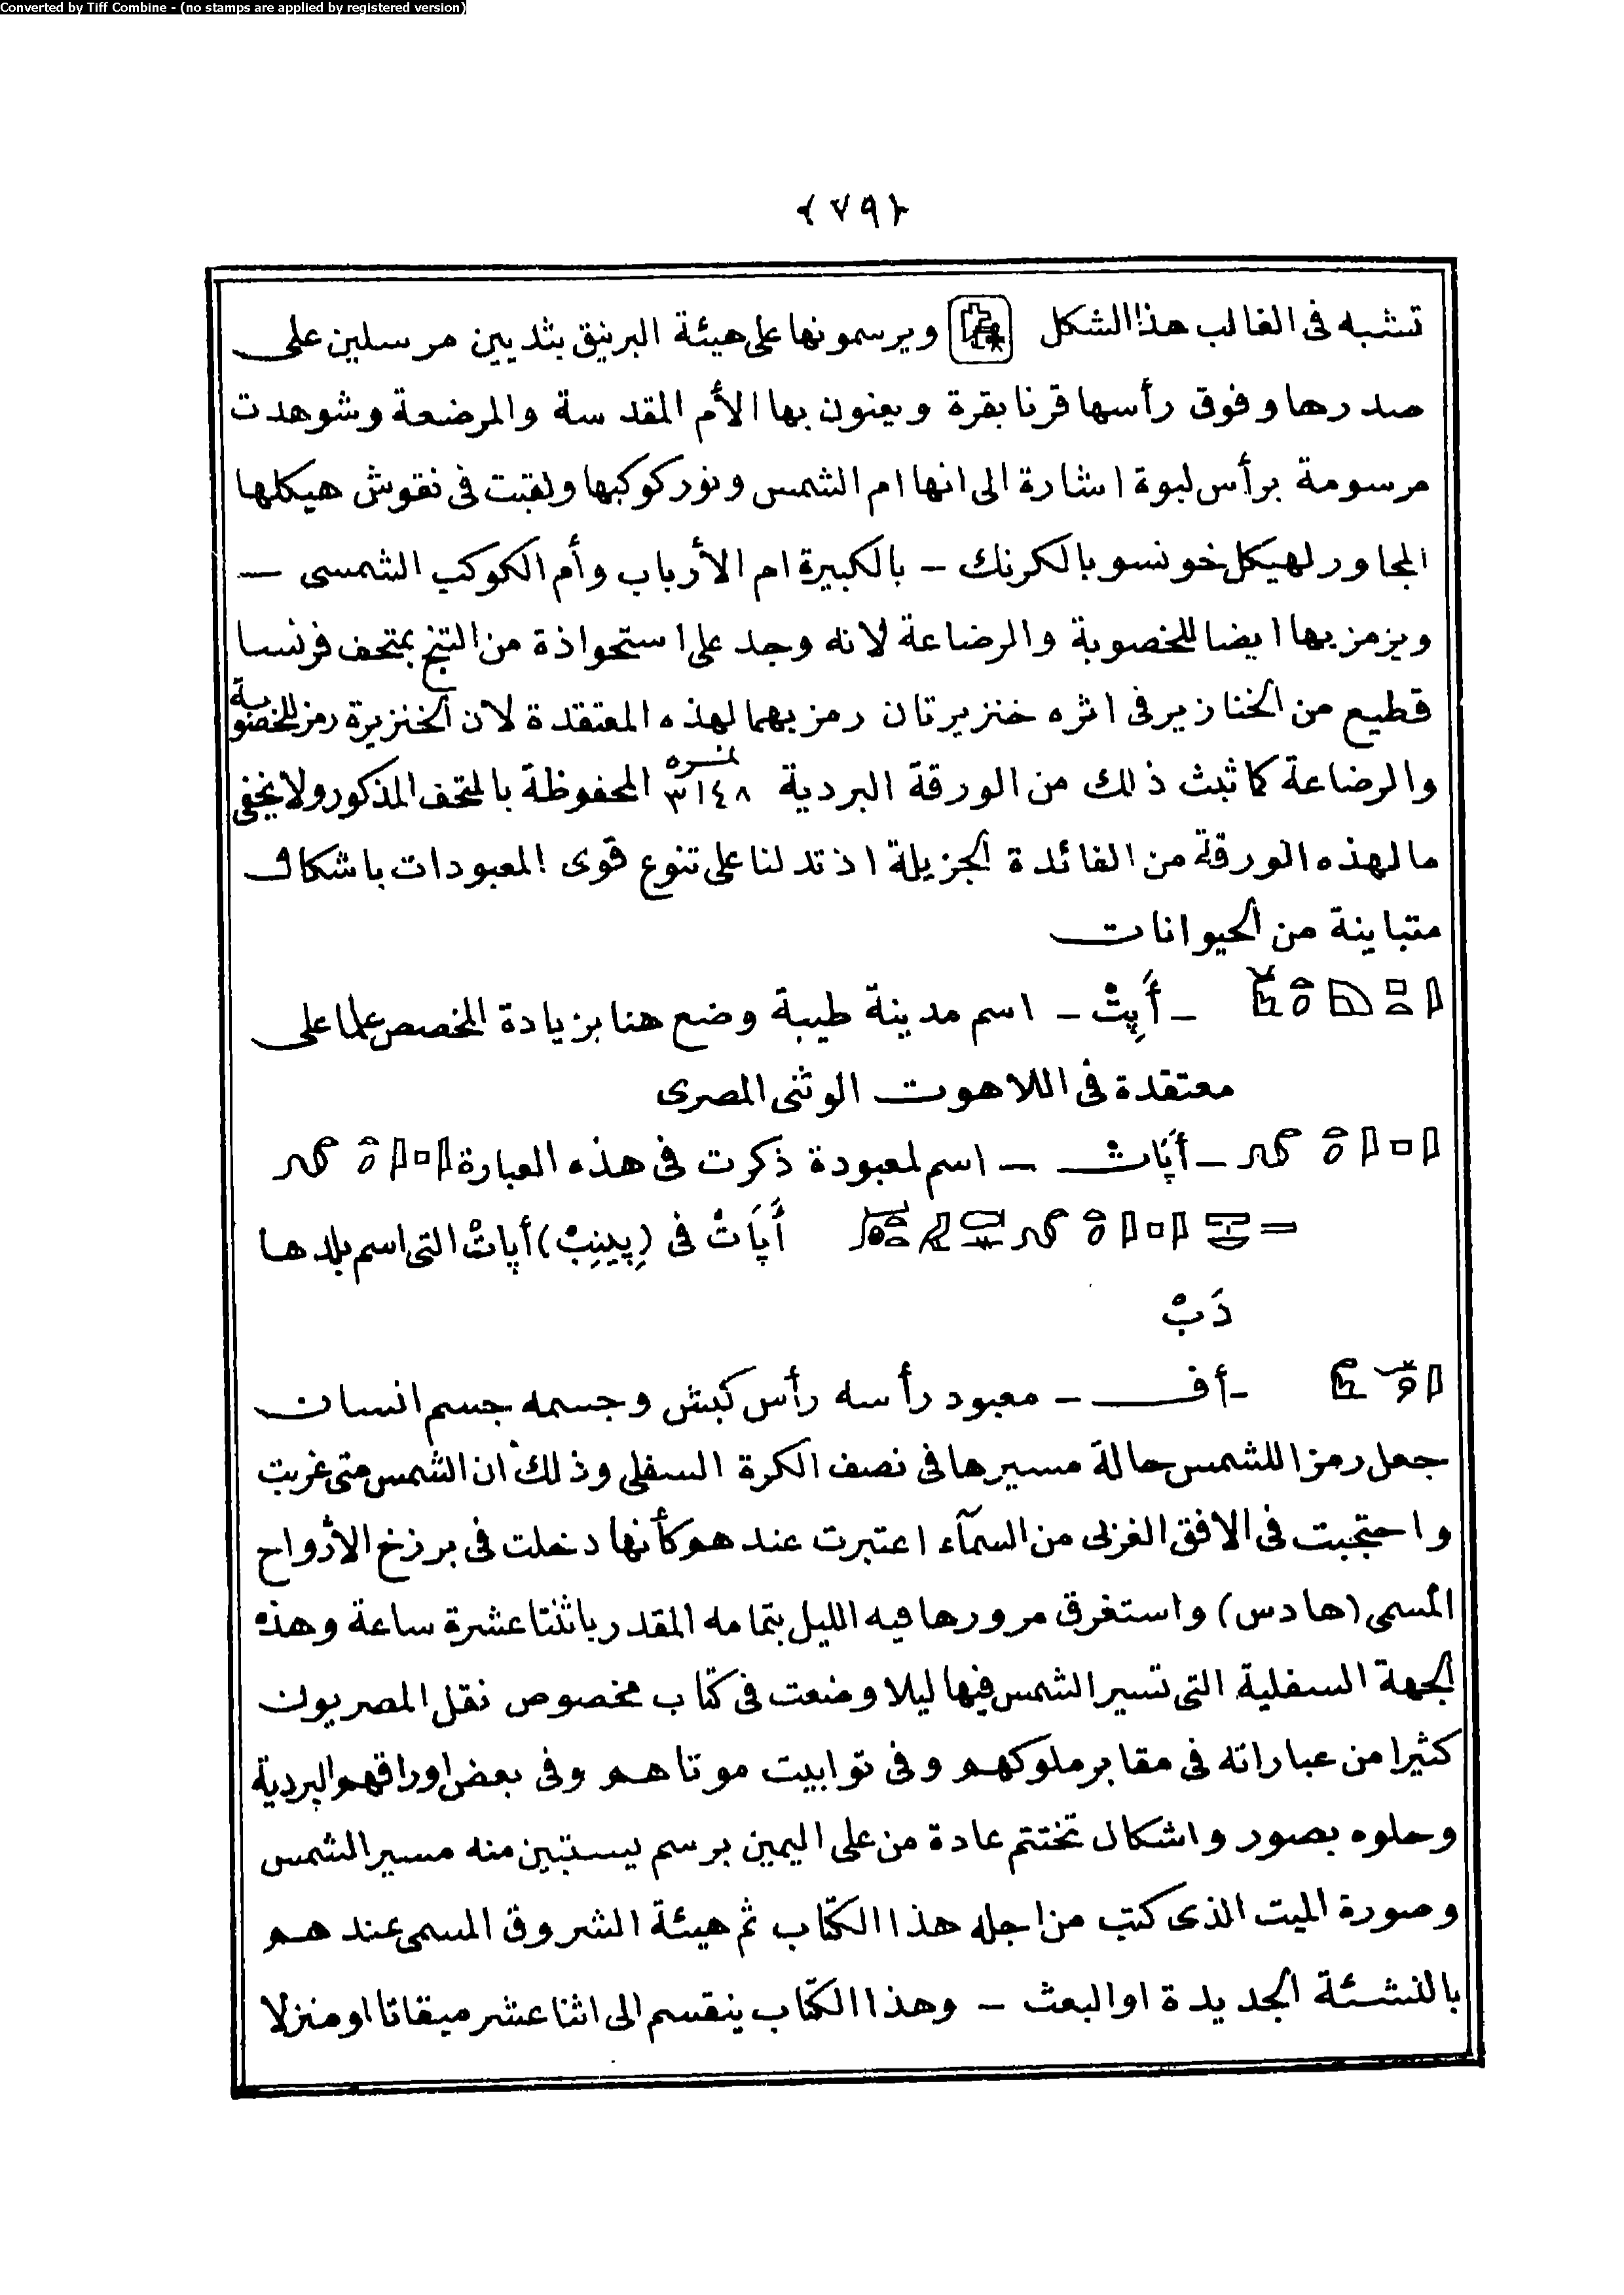 Converted by Tiff Combine - (no stamps are applied by registered version)
{٧٩}
تشبه فى الغالب هذا الشكل ويرسمونها على هيئة البرنيق بثديين مرسلين على
صدرها وفوق رأسها قرنا بقرة ويعنون بها الأم المقدسة والمرضعة وشوهدت
مرسومة برأس لبوة اشارة الى انها ام الشمس ونور كوكبها ولقبت فى نقوش هيكلها
المجاور لهيكل خونسو بالكرنك – بالكبيرة ام الأرباب وأم الكوكب الشمسى –
ويرمز بها ايضا للخصوبة والرضاعة لانه وجد على استحواذة من التنج بمتحف فرنسا
قطيع من الخنازير فى اثره خنزيرتان رمز بهما لهذه المعتقدة لان الخنزيرة رمز للخصوبة
والرضاعة كما ثبث ذلك من الورقة البردية نمره ٣١٤٨ المحفوظة بالمتحف المذكور ولا يخفى
ما لهذه الورقة من الفائدة الجزيلة اذ تدلنا على تنوع قوى المعبودات باشكال
متباينة من الحيوانات
– أَپِتْ – اسم مدينة طيبة وضع هنا بزيادة المخصص علما على
معتقدة فى اللاهوت الوثنى المصرى
– أَپَاتْ – اسم لمعبودة ذكرت فى هذه العبارة
أَپَاتْ فى (پِينِبْ) أپاتْ التى اسم بلدها
دَبْ
– أف – معبود رأسه رأس كبش وجسمه جسم انسان
جعل رمزا للشمس حالة مسيرها فى نصف الكرة السفلى وذلك ان الشمس متى غربت
واحتجبت فى الافق الغربى من السمآء اعتبرت عندهم كأنها دخلت فى برزخ الأرواح
المسمى (هادس) واستغرق مرورها فيه الليل بتمامه المقدر باثنتا عشرة ساعة وهذه
الجهة السفلية التى تسير الشمس فيها ليلا وضعت فى كتاب مخصوص نقل المصريون
كثيرا من عباراته فى مقابر ملوكهم وفى توابيت موتاهم وفى بعض اوراقهم البردية
وحلوه بصور واشكال تختتم عادة من على اليمين برسم يستبين منه مسير الشمس
وصورة الميت الذى كتب من اجله هذا الكتاب ثم هيئة الشروق المسمى عندهم
بالنشئة الجديدة او البعث – وهذا الكتاب ينقسم الى اثنا عشر ميقاتا او منزلا